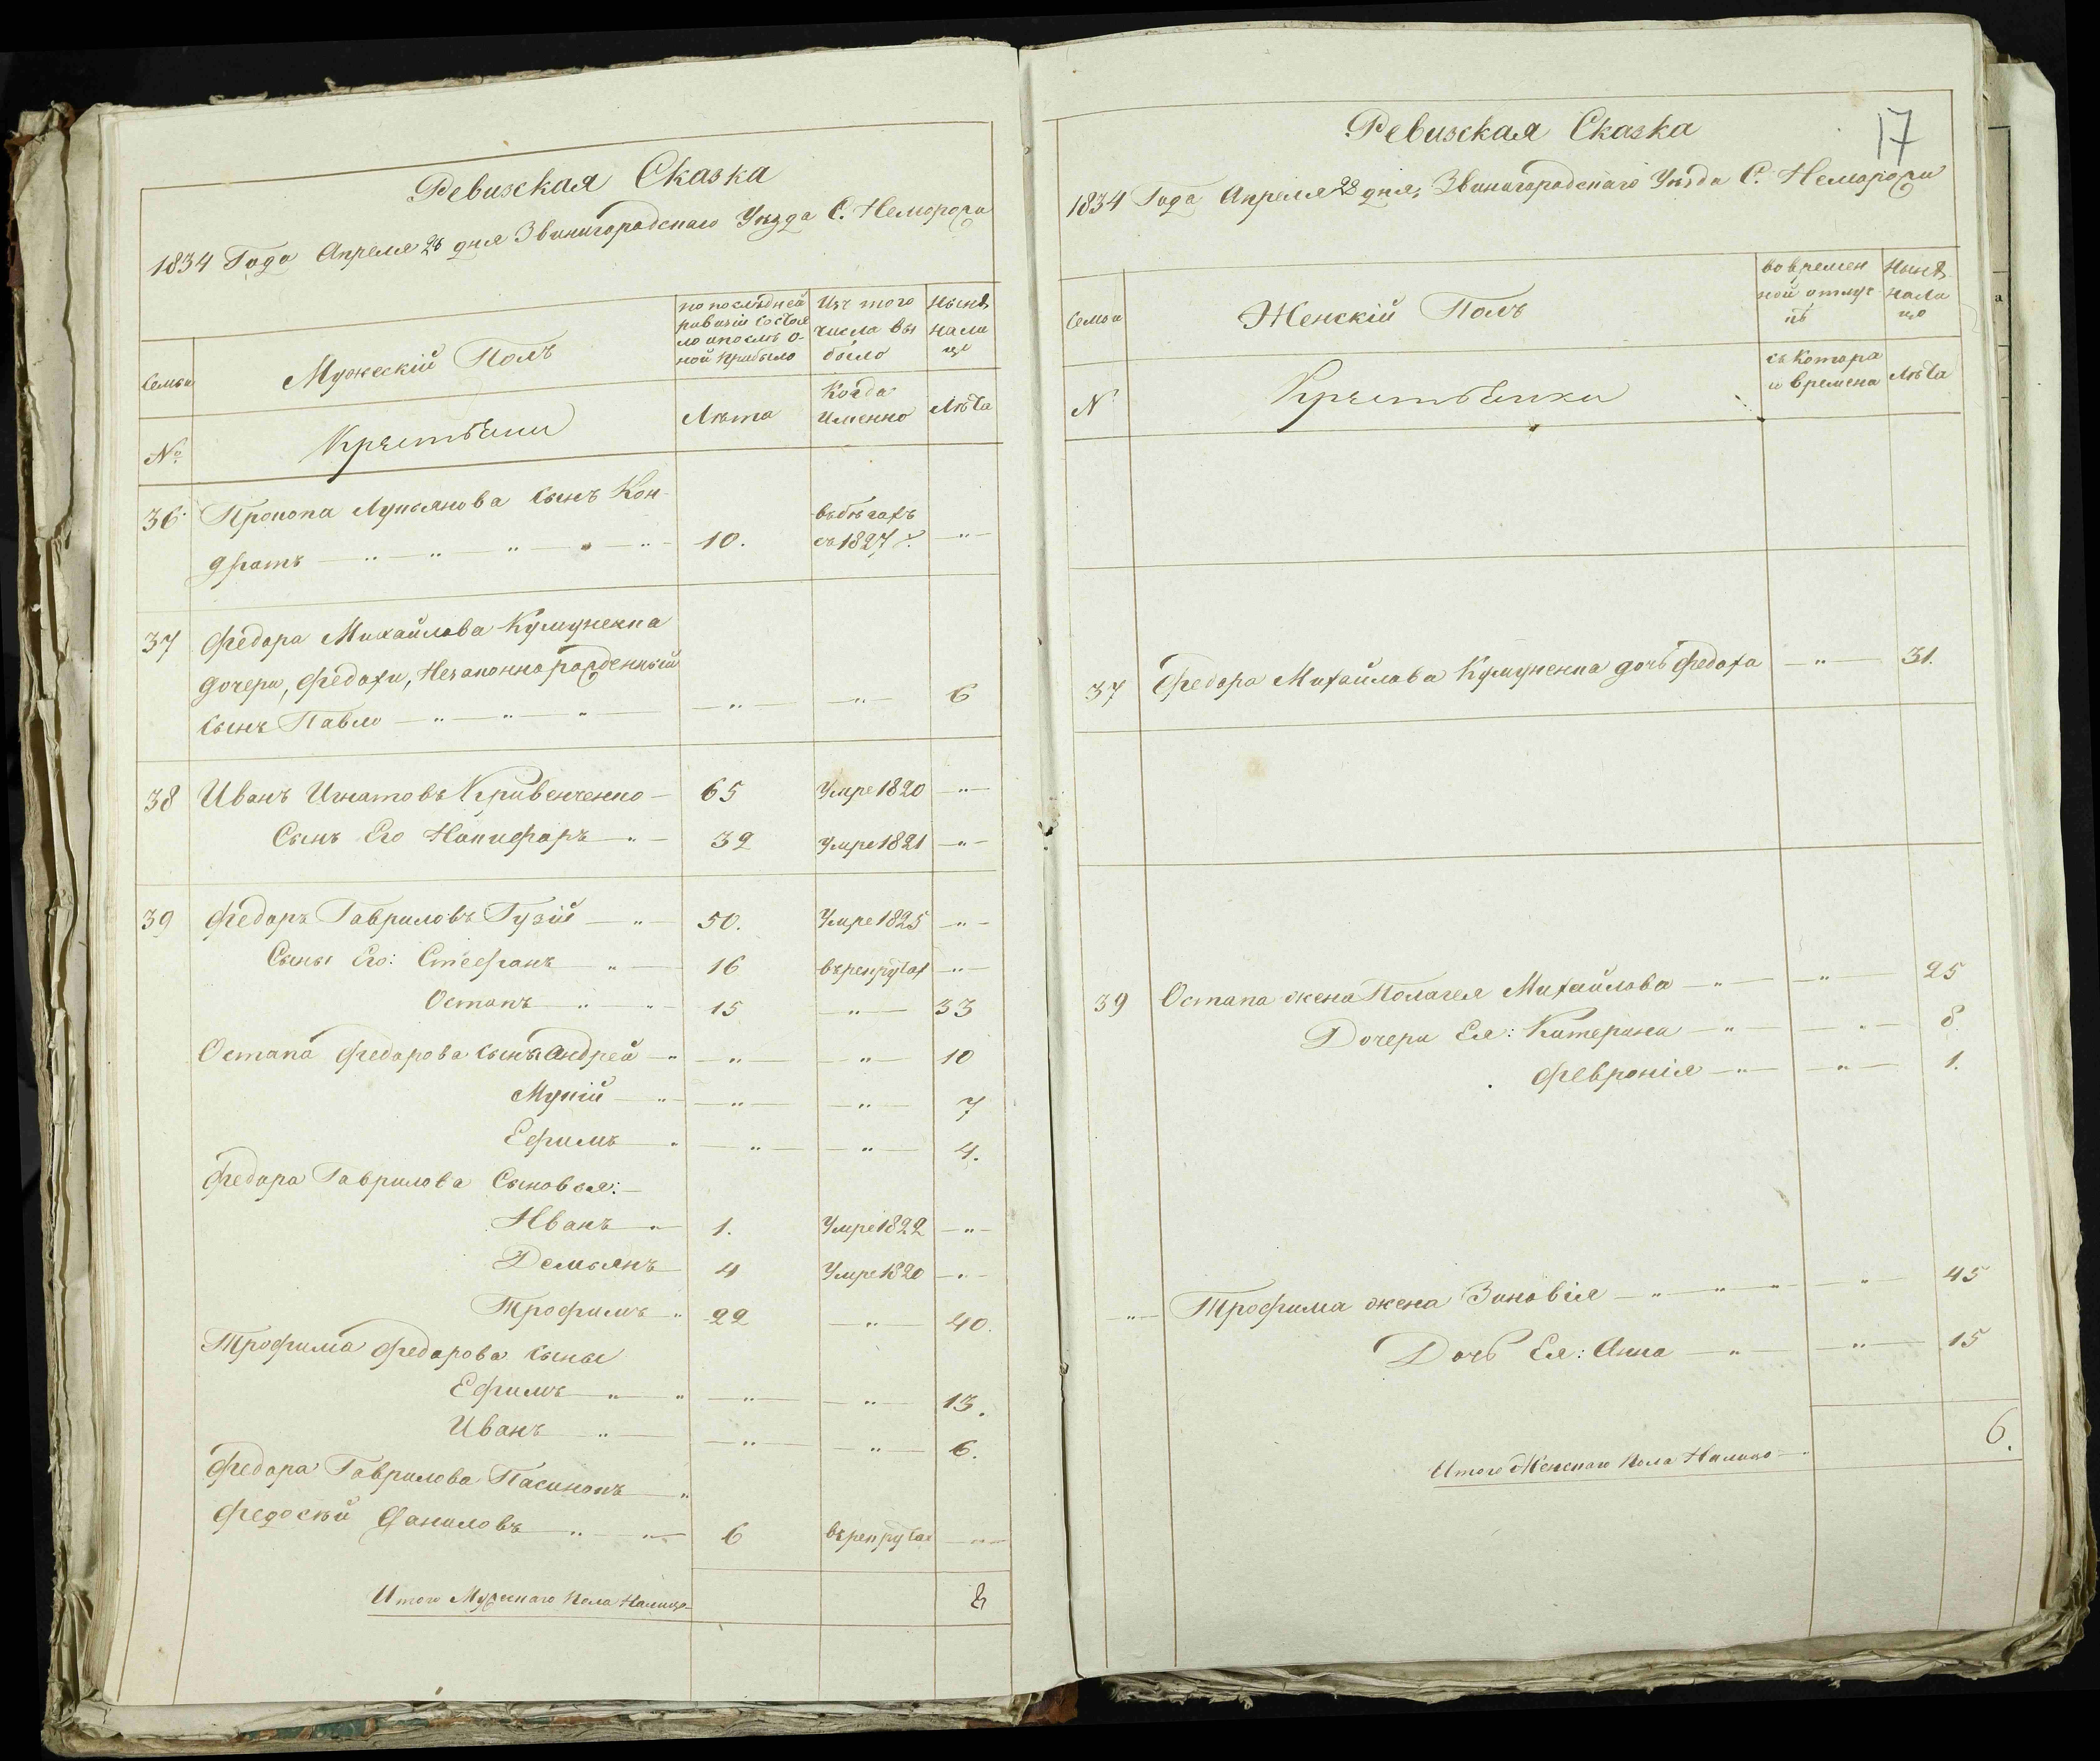 Ревизская Сказка
1834 Года Апреля 28 дня Звинигородскаго Уѣзда С. Неморожи
Семьи
Мужескій Полъ
по послѣдней ревизіи состояло и послѣ оной прибыло
Изъ того числа выбыло
Нынѣ налицо
№
Крестьяни
Лѣта
Когда Именно
Лѣта
36. Прокопа Лукьянова сынъ Кон-
дратъ — " — " — " — " — " — 10. въ бѣгахъ съ 1827 г. — " —
37 Федора Михайлова Кумуненка
дочери, Федохи, Незаконнорожденный
сынъ Павло — " — " — " — — " — — " — 6
38 Иванъ Игнатовъ Кривенченко — 65 Умре 1820 — " —
Сынъ Его Никифоръ — " — 39 Умре 1821 — " —
39 Федоръ Гавриловъ Гузій — " — 50. Умре 1825 — " —
Сыны Его: Стефанъ — " — 16 въ рекрутах — " —
Остапъ — " — " — 15 — " — 33
Остапа Федорова сынъ Андрей — " — " — — " — 10
Мукій — " — — " — — " — 7
Ефимъ — " — " — — " — 4.
Федора Гаврилова Сыновья: —
Иванъ — " 1. Умре 1822 — " —
Демьянъ 4 Умре 1820 — " —
Трофимъ " 22 — " — 40.
Трофима Федорова сыны
Ефимъ — " — " — " — — " — 13.
Иванъ — " — — " — — " — 6.
Федора Гаврилова Пасинокъ — "
Федосѣй Даниловъ — " — " — 6 въ рекрутах — " —
Итого Мужескаго пола Налицо 8
17
Ревизская Сказка
1834 Года Апреля 28 дня, Звинигородскаго Уѣзда С. Неморожи
Семьи
Женскій Полъ
во временной отлучкѣ
Нынѣ налицо
N
Крестьянки
съ котораго времена
Лѣта
37 Федора Михайлова Кумуненка дочь Федоха — " — 31.
39 Остапа жена Полагея Михайлова — " — — " — 25
Дочери Ея: Катерина — " — " — 8
Февронія — " — — " — 1.
— " — Трофима жена Зиновія — " — " — " — " — 45
Дочь Ея: Анна — " — — " — 15
Итого Женскаго пола Налицо — " 6.